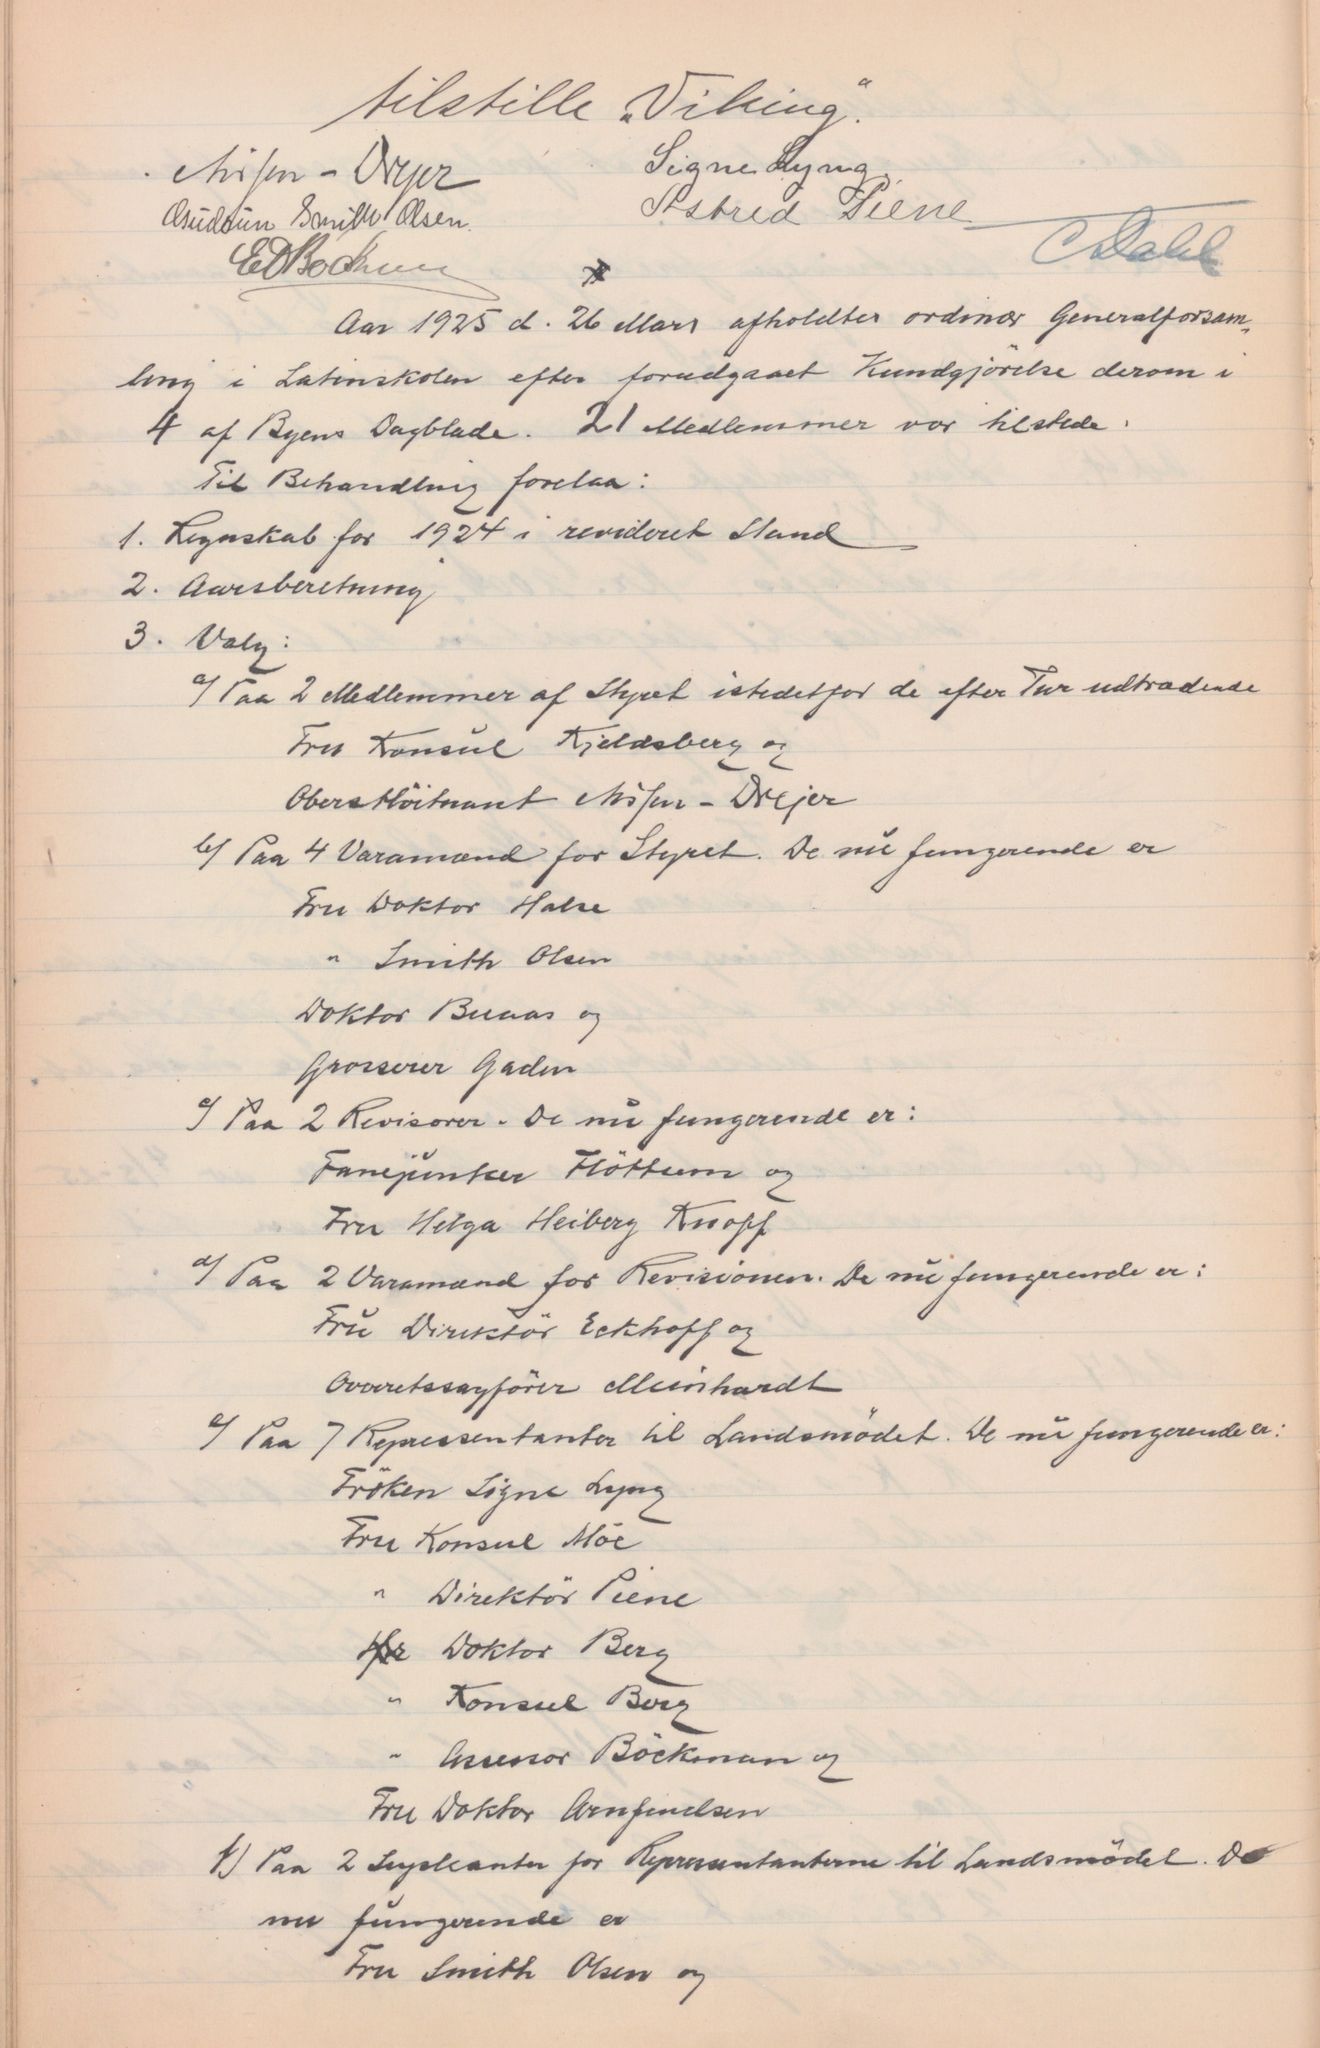 tilstille „Viking“.
Nissen - Drejer
Signe Lyng
Gudrun Smith Olsen.
Astrid Piene
EDBöckman
C Dahl
Aar 1925 d. 26 Mars afholdtes ordinær Generalforsam-
ling i Latinskolen efter forudgaaet Kundgjörelse derom i
4 af Byens Dagblade. 21 Medlemmer var tilstede.
Til Behandling forelaa:
1. Regnskab for 1924 i revideret Stand
2. Aarsberetning
3. Valg:
a/ Paa 2 Medlemmer af Styret istedetfor de efter Tur udtrædende
Fru Konsul Kjeldsberg og
Oberstlöitnant Nissen - Drejer
b/ Paa 4 Varamænd for Styret. De nu fungerende er
Fru Doktor Halse
" Smith Olsen
Doktor Buaas og
Grosserer Gaden
c/ Paa 2 Revisorer. De nu fungerende er:
Fanejunker Flöttum og
Fru Helga Heiberg Knoff
d/ Paa 2 Varamænd for Revisionen. De nu fungerende er:
Fru Direktör Eckhoff og
Overretssagförer Meinhardt
e/ Paa 7 Repressentanter til Landsmödet. De nu fungerende er:
Fröken Signe Lyng
Fru Konsul Möe
" Direktör Piene
Hr Doktor Berg
" Konsul Berg
" Assessor Böckman og
Fru Doktor Arnfindsen
f) Paa 2 Supleanter for Repressentanterne til Landsmödet. De
nu fungerende er
Fru Smith Olsen og